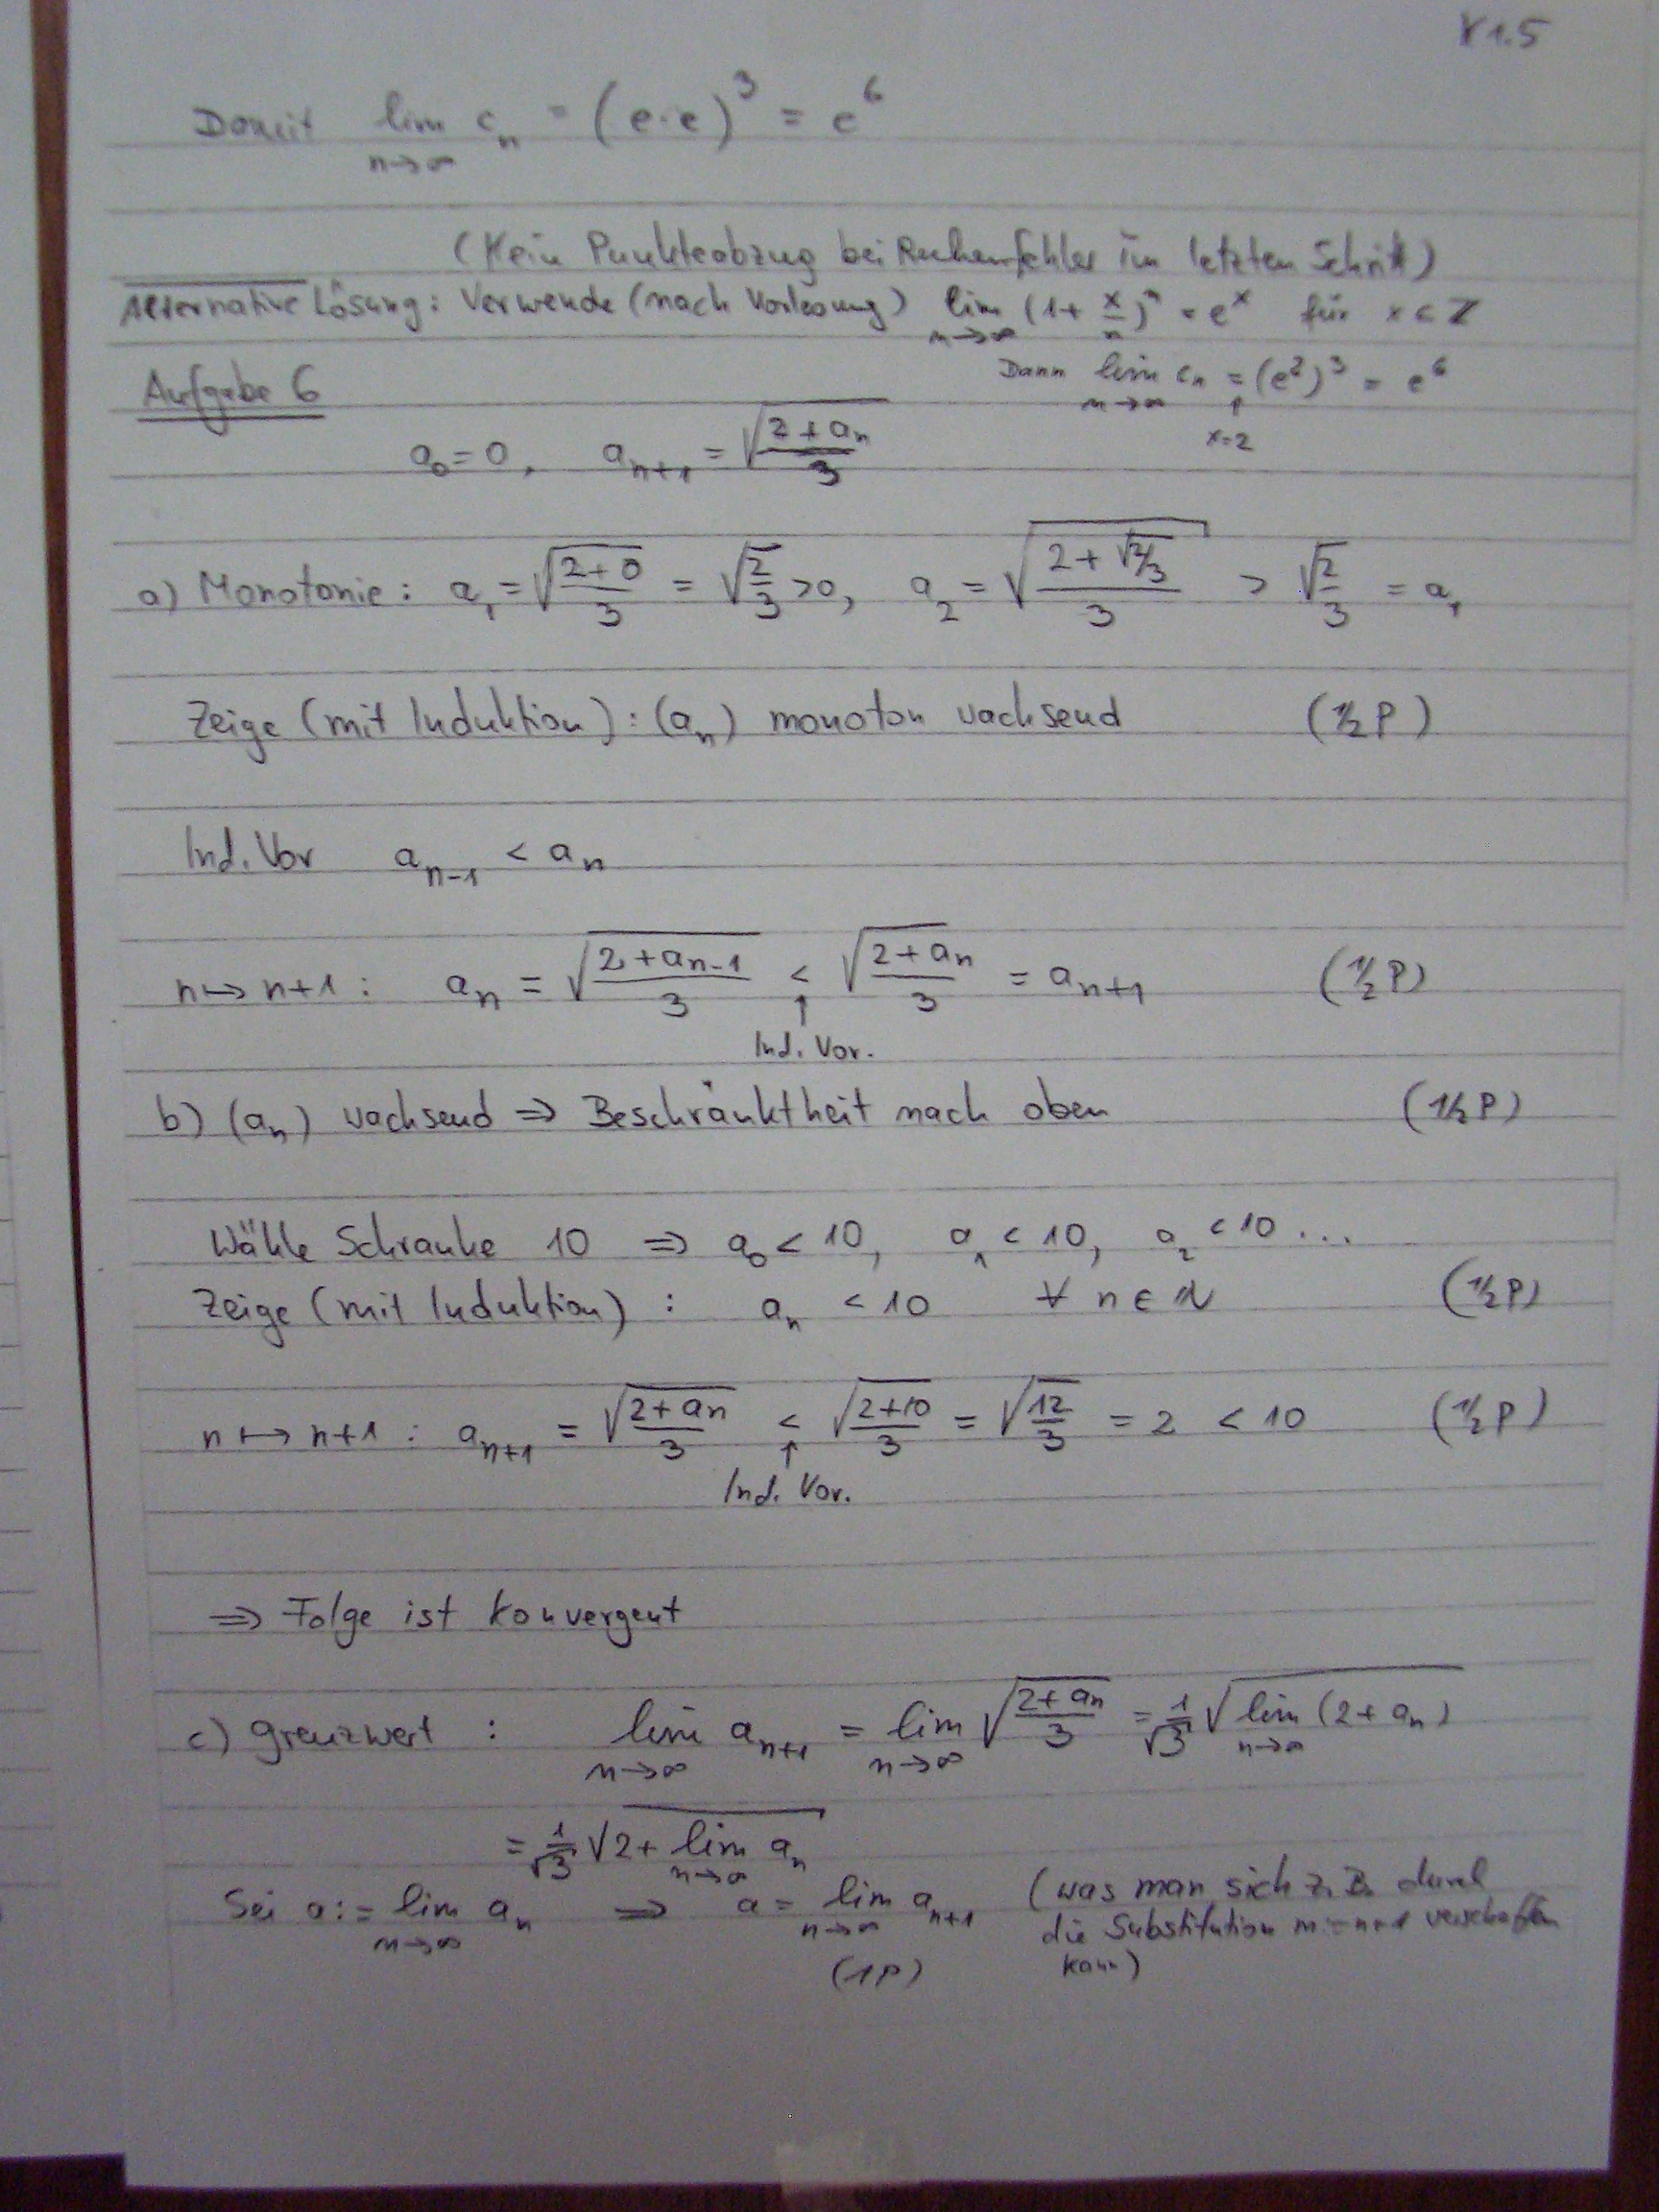 V1.5
Damit lim n→∞ c_n = (e·e)^3 = e^6
(Kein Punkteabzug bei Rechenfehler im letzten Schritt)
Alternative Lösung: Verwende (nach Vorlesung) lim n→∞ (1+ x/n)^n = e^x für x ∈ Z
Dann lim n→∞ c_n = (e^2)^3 = e^6
↑ x=2
Aufgabe 6
a_0 = 0, a_{n+1} = √((2+a_n)/3)
a) Monotonie: a_1 = √((2+0)/3) = √(2/3) > 0, a_2 = √((2+√(2/3))/3) > √(2/3) = a_1
Zeige (mit Induktion): (a_n) monoton wachsend (1/2 P)
Ind. Vor a_{n-1} < a_n
n ↦ n+1 : a_n = √((2+a_{n-1})/3) < √((2+a_n)/3) = a_{n+1} (1/2 P)
↑ Ind. Vor.
b) (a_n) wachsend ⇒ Beschränktheit nach oben (1/2 P)
Wähle Schranke 10 ⇒ a_0 < 10, a_1 < 10, a_2 < 10 ...
Zeige (mit Induktion) : a_n < 10 ∀ n ∈ N (1/2 P)
n ↦ n+1 : a_{n+1} = √((2+a_n)/3) < √((2+10)/3) = √(12/3) = 2 < 10 (1/2 P)
↑ Ind. Vor.
⇒ Folge ist konvergent
c) Grenzwert : lim n→∞ a_{n+1} = lim n→∞ √((2+a_n)/3) = 1/√3 √(lim n→∞ (2+a_n))
= 1/√3 √(2+ lim n→∞ a_n)
Sei a := lim n→∞ a_n ⇒ a = lim n→∞ a_{n+1} (was man sich z.B. durch
die Substitution m=n+1 verschaffen
(1P) kann)